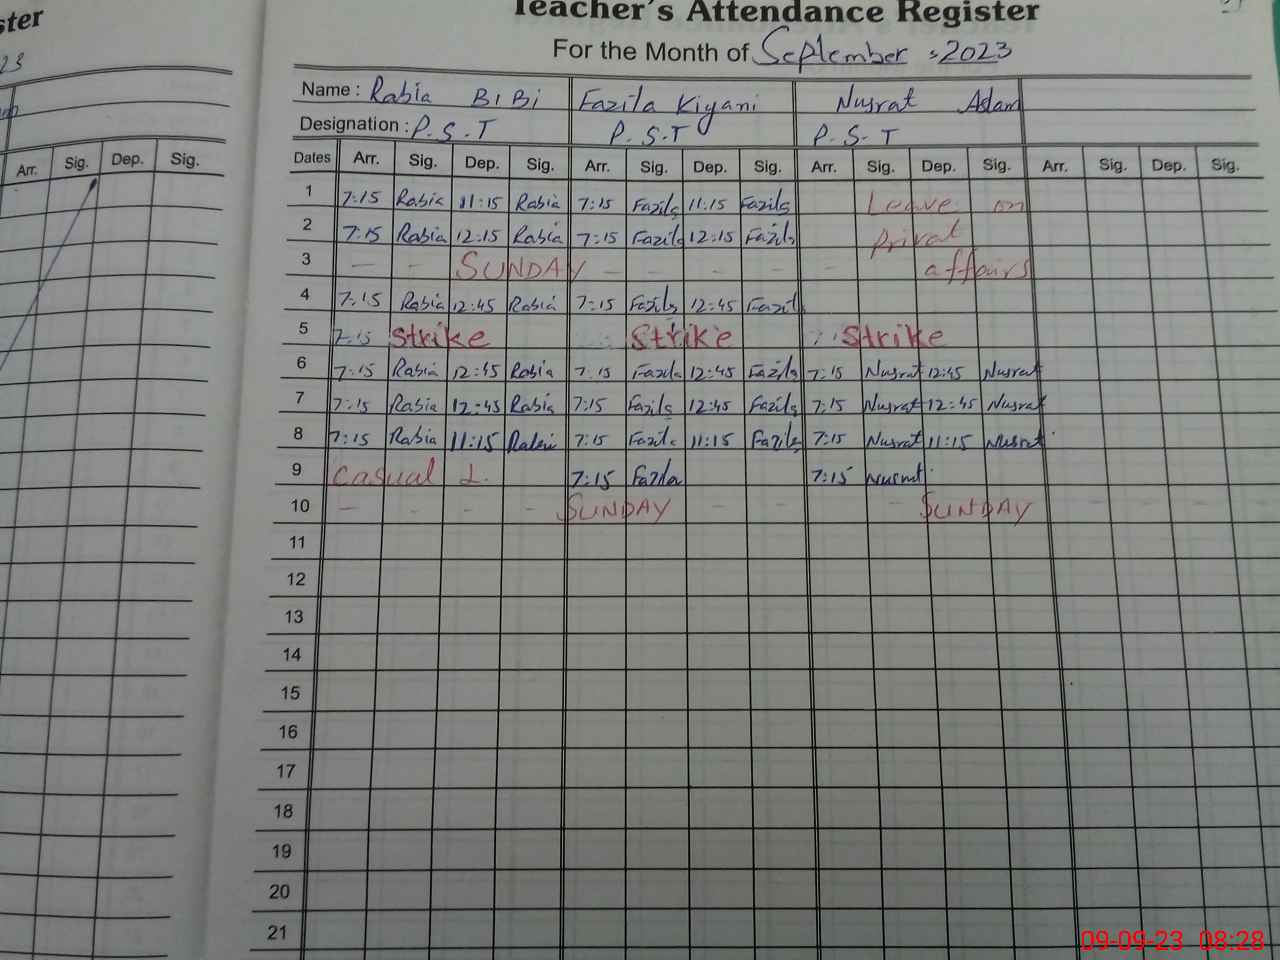 ster
23
Teacher's Attendance Register
For the Month of September 2023
Name : Rabia BiBi Fazila Kiyani Nusrat Aslam
Designation : P.S.T P.S.T P.S.T
Arr. Sig. Dep. Sig.
Dates Arr. Sig. Dep. Sig. Arr. Sig. Dep. Sig. Arr. Sig. Dep. Sig. Arr. Sig. Dep. Sig.
1 7:15 Rabia 11:15 Rabia 7:15 Fazila 11:15 Fazila Leave on
2 7:15 Rabia 12:15 Rabia 7:15 Fazila 12:15 Fazila Privat
3 – – SUNDAY – – – – – affairs
4 7:15 Rabia 12:45 Rabia 7:15 Fazila 12:45 Fazil
5 7:15 Strike Strike Strike
6 7:15 Rabia 12:45 Rabia 7:15 Fazila 12:45 Fazila 7:15 Nusrat 12:45 Nusrat
7 7:15 Rabia 12:45 Rabia 7:15 Fazila 12:45 Fazila 7:15 Nusrat 12:45 Nusrat
8 7:15 Rabia 11:15 Rabia 7:15 Fazila 11:15 Fazila 7:15 Nusrat 11:15 Nusrat
9 Casual L. 7:15 Fazila 7:15 Nusrat
10 – – – – SUNDAY – – – SUNDAY
11
12
13
14
15
16
17
18
19
20
21
09-09-23 08:28